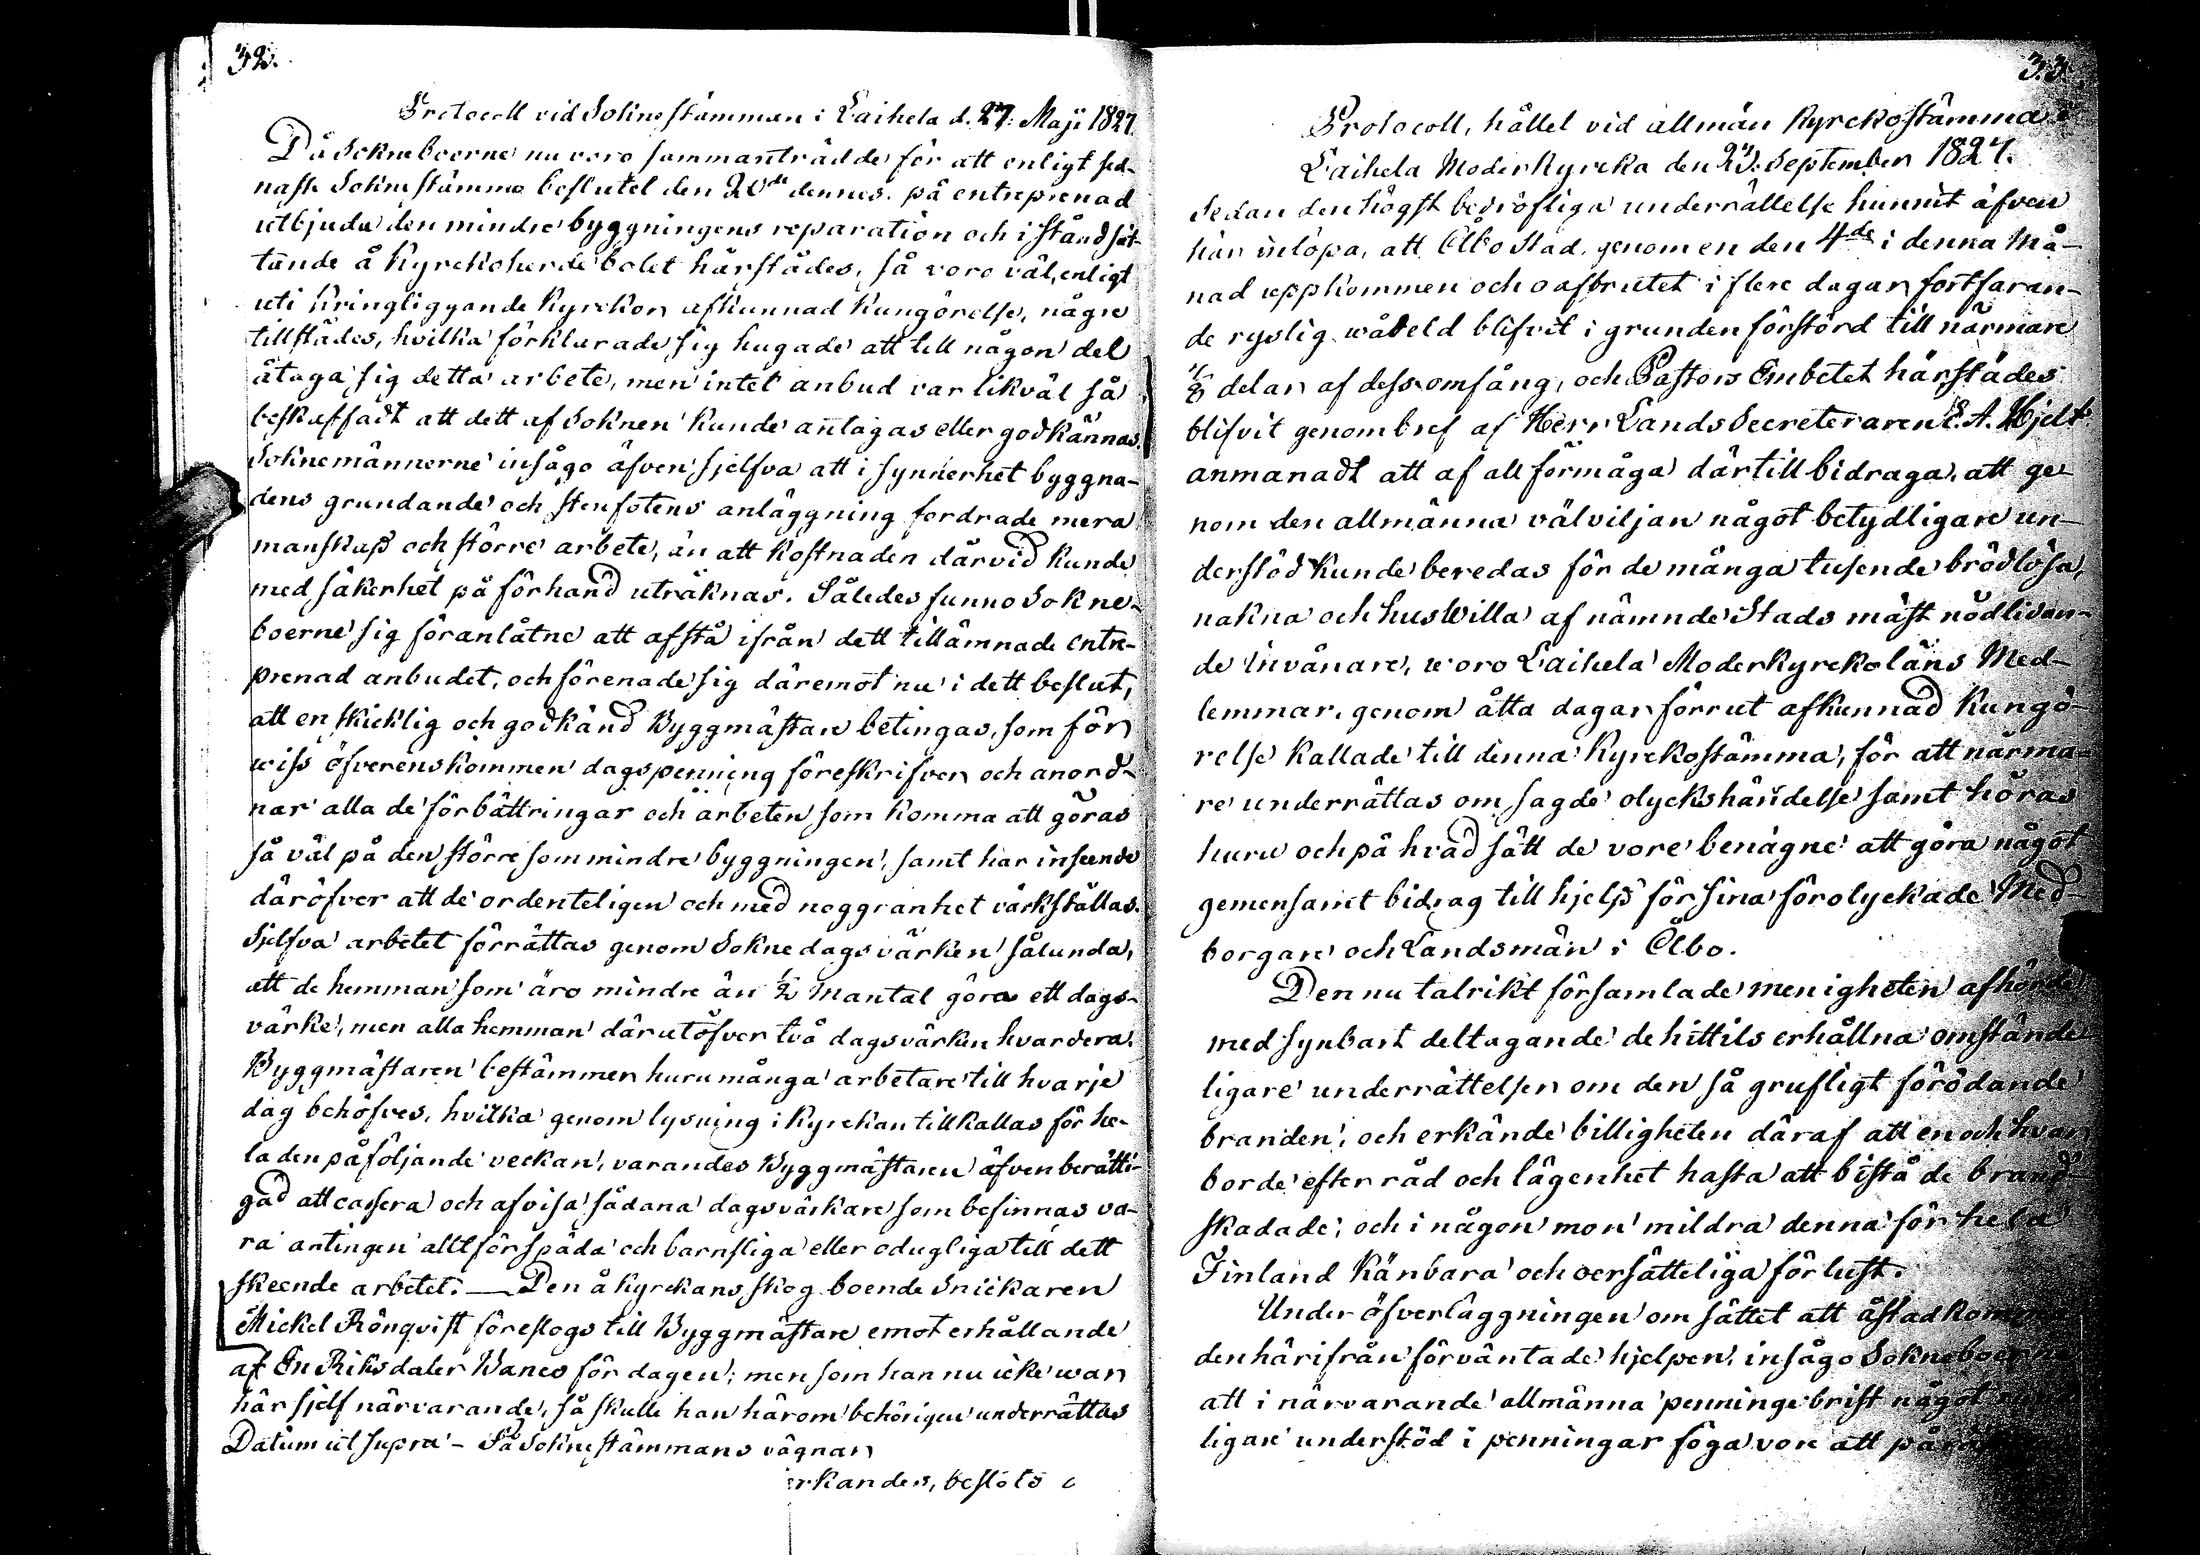 32.
Protocoll vid Sokne stämman i Laihela d. 27. Maji 1827.
Då Sokneboerne nu voro sammanträdde för att enligt sed-
naste Sokne stämma beslutet den 20de dennes. på entreprenad
utbjuda den mindre byggningens reparation och i stånd sät-
tande å Kyrckoherde bolet härstädes, så voro väl, enligt
uti kringliggande Kyrckor afkunnad Kungörelse, någre
tillstädes, hvilka förklarade sig hugade att till någon del
åtaga sig detta arbete, men intet anbud var likväl så
beskaffadt att dett af Soknen kunde antagas eller godkännas.
Soknemännerne insågo äfven sjelfva att i synnerhet byggna-
dens grundande och stenfotens anläggning fordrade mera
manskap och större arbete, än att kostnaden därvid kunde
med säkerhet på förhand uträknas. Således funno Sokne-
boerne sig föranlåtne att afstå ifrån dett tillämnade entre-
prenad anbudet, och förenade sig däremot nu i dett beslut,
att en skicklig och godkänd Byggmästare betingas, som för
wiss öfverenskommen dagspenning föreskrifver och anord-
nar alla de förbättringar och arbeten som komma att göras
så väl på den större som mindre byggningen, samt har inseende
däröfver att de ordenteligen och med noggranhet värkställas.
Sjelfva arbetet förrättas genom Sokne dagsvärken sålunda,
att de hemman som äro mindre än 1/2 Mantal göra ett dags-
värke, men alla hemman därutöfver två dagsvärken hvardera.
Byggmästaren bestämmer huru många arbetare till hvarje
dag behöfves, hvilka genom lysning i Kyrckan tillkallas för he-
la den påföljande veckan, varandes Byggmästaren äfven berätti-
gad att cassera och afvisa sådana dagsvärkare som befinnas va-
ra antingen alltför späda och barnsliga eller odugliga till dett
skeende arbetet. — Den å Kyrckans skog boende Snickaren
Mickel Rönqvist föreslogs till Byggmästare emot erhållande
af En Riksdaler Banco för dagen; men som han nu icke war
här sjelf närvarande, så skulle han härom behörigen underrättas
Datum ut supra - På Sokne stämmans vägnar
erkandes, beslöts
33.
Protocoll, hållet vid allmän Kyrckostämma i
Laihela Moderkyrcka den 23. September 1827.
Sedan den högst bedröfliga underrättelse hunnit äfven
här inlöpa, att Åbo Stad, genom en den 4de i denna Må-
nad uppkommen och oafbrutet i flere dagar fortfaran-
de ryslig wådeld blifvit i grunden förstörd till närmare
7/8 delar af dess omfång, och Pastors Embetet härstädes
blifvit genom bref af Herr Lands Secreteraren E. A. Hjelt
anmanadt att af all förmåga därtill bidraga, att ge-
nom den allmänna välviljan något betydligare un-
derstöd kunde beredas för de många tusende brödlösa,
nakna och huswilla af nämnde Stads mäst nödlidan-
de invånare, woro Laihela Moderkyrckoläns Med-
lemmar, genom åtta dagar förrut afkunnad Kungö-
relse kallade till denna Kyrckostämma, för att närma-
re underrättas om sagde olyckshändelse samt höras
huru och på hvad sätt de vore benägne att göra något
gemensamt bidrag till hjelp för sina förolyckade Med-
borgare och Landsmän i Åbo.
Den nu talrikt församlade menigheten afhörde
med synbart deltagande de hittils erhållna omstände
ligare underrättelser om den så grufligt förödande
branden, och erkände billigheten däraf att en och hvar
borde efter råd och lägenhet hasta att bistå de brand-
skadade, och i någon mon mildra denna för hela
Finland känbara och oersätteliga förlust.
Under öfverläggningen om sättet att åstadkomma
den härifrån förväntade hjelpen, insågo Sokneboerne
att i närvarande allmänna penninge brist något
ligare understöd i penningar föga vore att